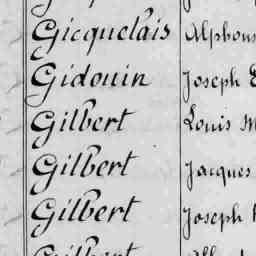 Gicquelais Alphons
Gidouin Joseph
Gilbert Louis M
Gilbert Jacques
Gilbert Joseph
Gilbert